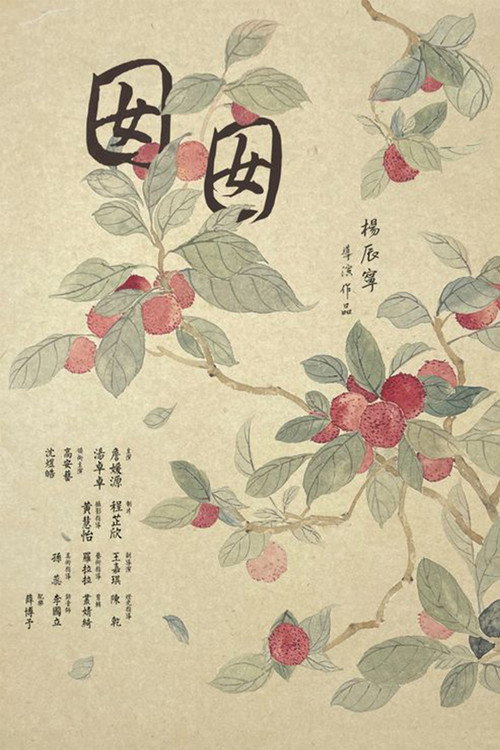 囡囡
楊辰寧
導演作品
主演
詹媛源
湯卓卓
領銜主演
高安藝
沈煜皓
製片
程芷欣
攝影指導
黃慧怡
副導演
王嘉琪
藝術指導
羅拉拉
美術指導
孫蕊
燈光指導
陳乾
剪輯
錄音師
李國立
配樂
薛博予